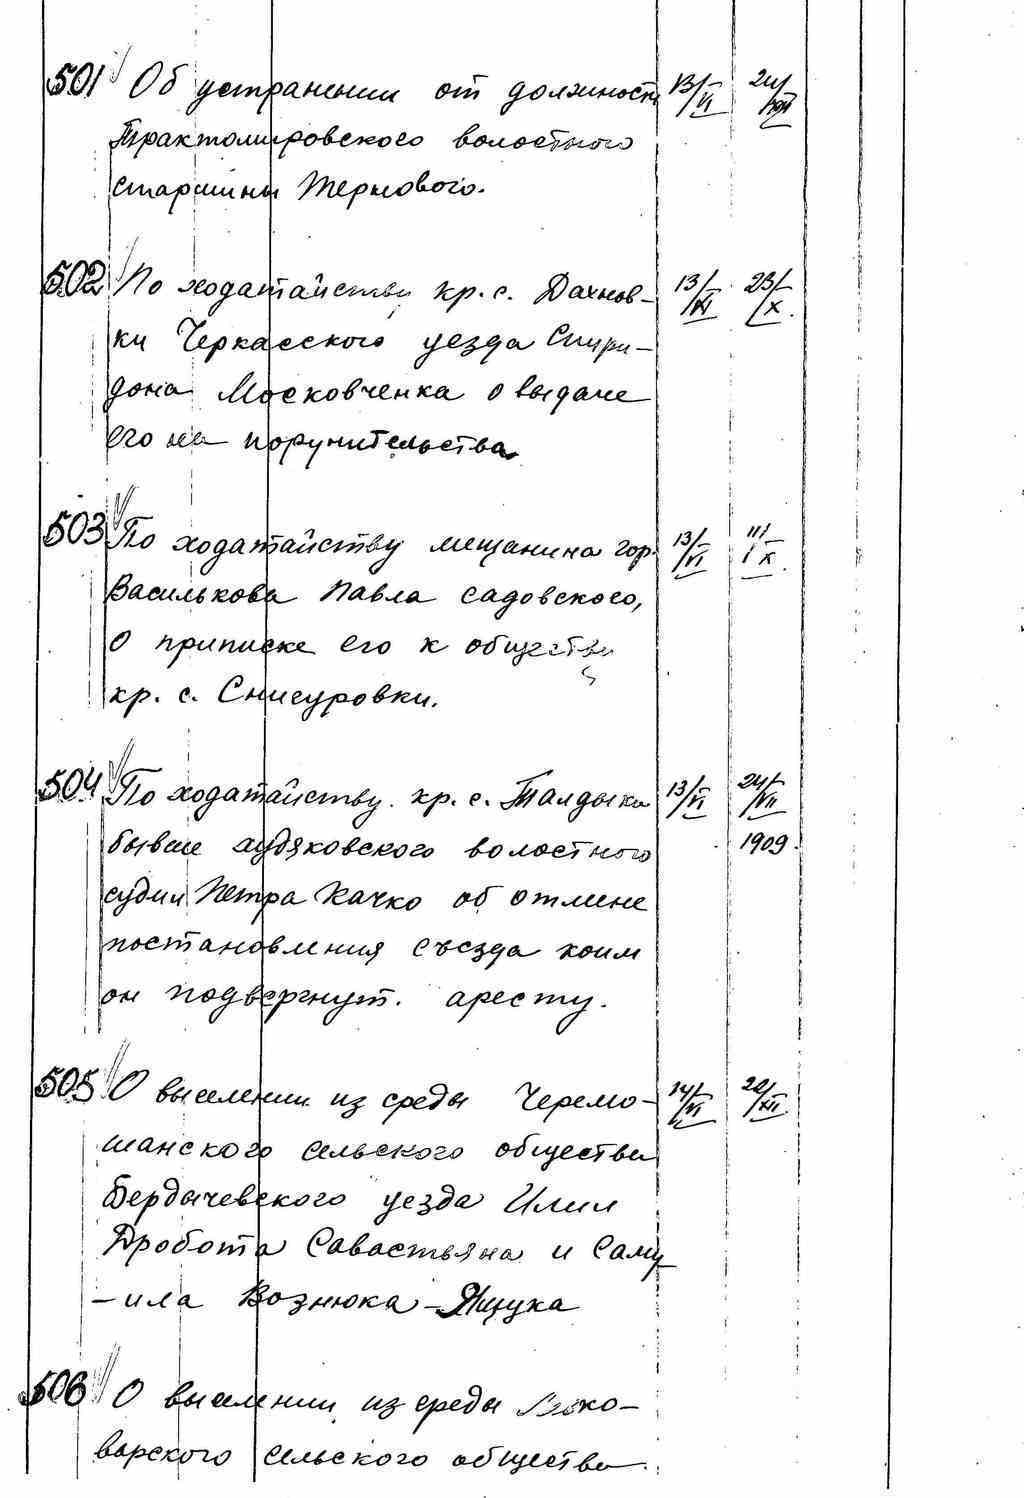 501 Об устранении от должности 13/VI 24/VIII
Трактомировского волостного
старшины Тернового.
502 По ходатайству кр. с. Дахнов- 13/VI 23/X.
ки Черкасского уезда Спири-
дона Московченка о выдаче
его на поручительства
503 По ходатайству мещанина гор. 13/VI X.
Василькова Павла Садовского,
о приписке его к обществу
кр. с. Снигуровки.
504 По ходатайству кр. с. Талдыки 13/VI 24/VII
бывше худяковского волостного 1909.
судии Петра Качко об отмене
постановления съезда коим
он подвергнут. аресту.
505 О выселении из среды Черемо- 14/VI /XII
шанского сельского общества
Бердичевского уезда Илии
Дробота Савастьяна и Саму-
-ила Вознюка-Ящука
506 О выселении из среды
варского сельского общества.